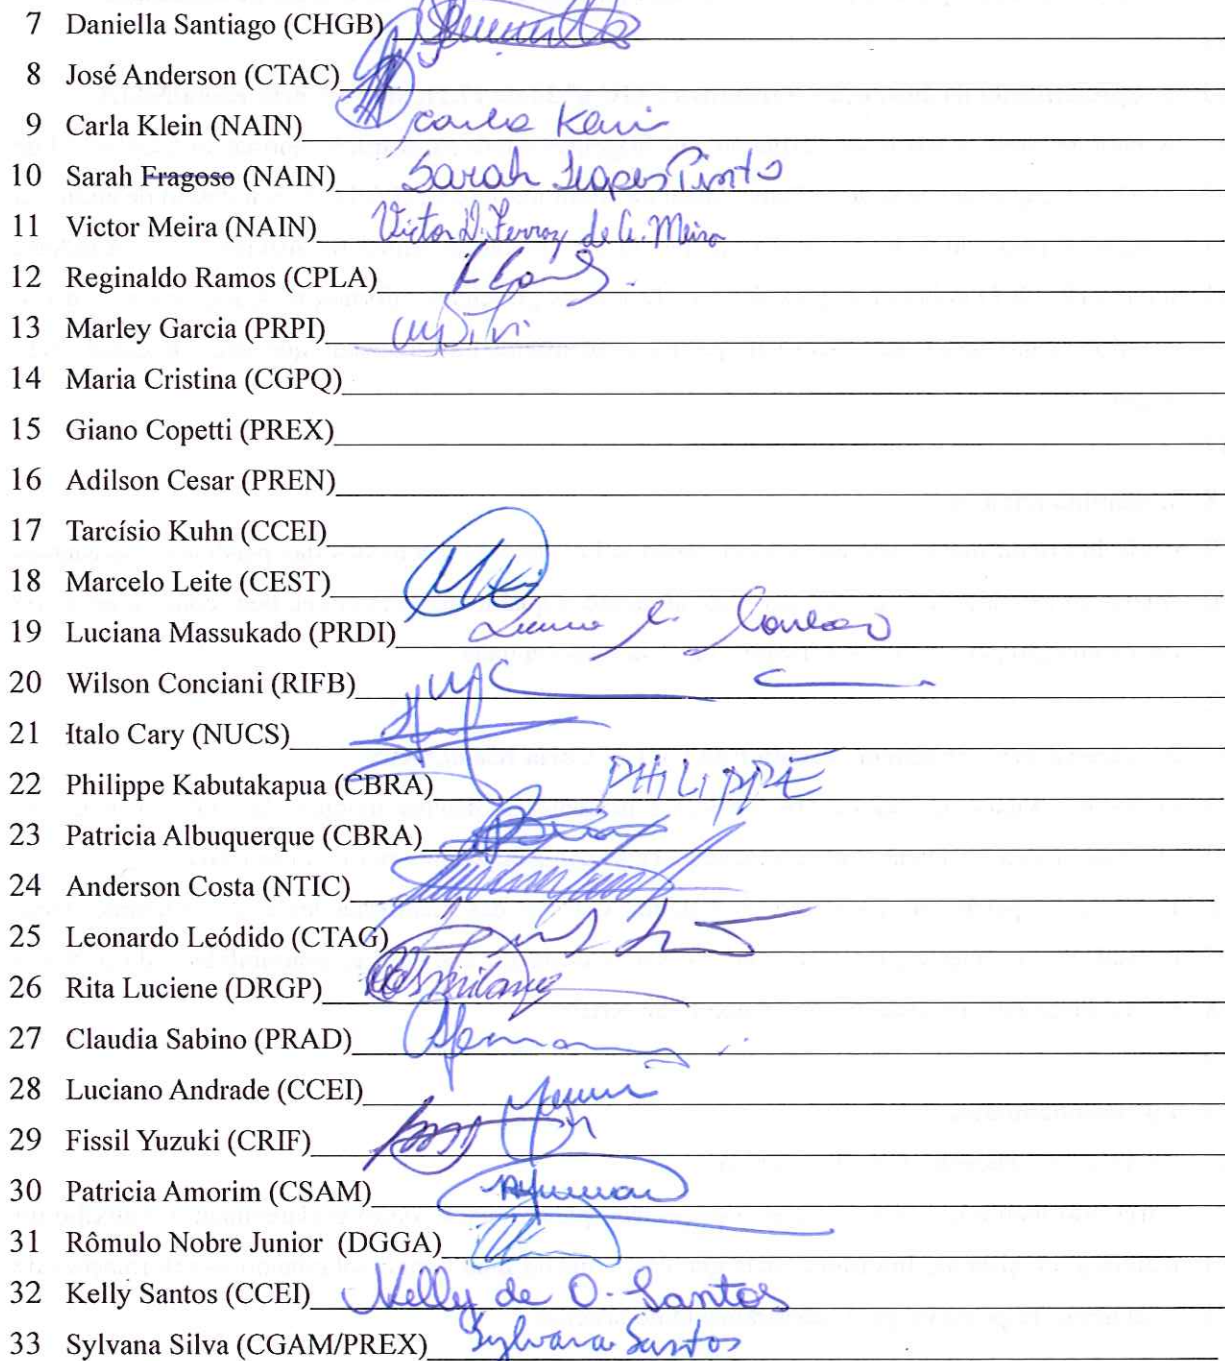 7 Daniella Santiago (CHGB)
8 José Anderson (CTAC)
9 Carla Klein (NAIN) Carla Klein
10 Sarah Fragoso (NAIN) Sarah Lopes Pinto
11 Victor Meira (NAIN) Victor D. Ferraz de A. Meira
12 Reginaldo Ramos (CPLA)
13 Marley Garcia (PRPI)
14 Maria Cristina (CGPQ)
15 Giano Copetti (PREX)
16 Adilson Cesar (PREN)
17 Tarcísio Kuhn (CCEI)
18 Marcelo Leite (CEST)
19 Luciana Massukado (PRDI)
20 Wilson Conciani (RIFB)
21 Italo Cary (NUCS)
22 Philippe Kabutakapua (CBRA) PHILIPPE
23 Patricia Albuquerque (CBRA)
24 Anderson Costa (NTIC)
25 Leonardo Leódido (CTAG)
26 Rita Luciene (DRGP)
27 Claudia Sabino (PRAD)
28 Luciano Andrade (CCEI)
29 Fissil Yuzuki (CRIF)
30 Patricia Amorim (CSAM)
31 Rômulo Nobre Junior (DGGA)
32 Kelly Santos (CCEI) Kelly de O. Santos
33 Sylvana Silva (CGAM/PREX) Sylvana Santos